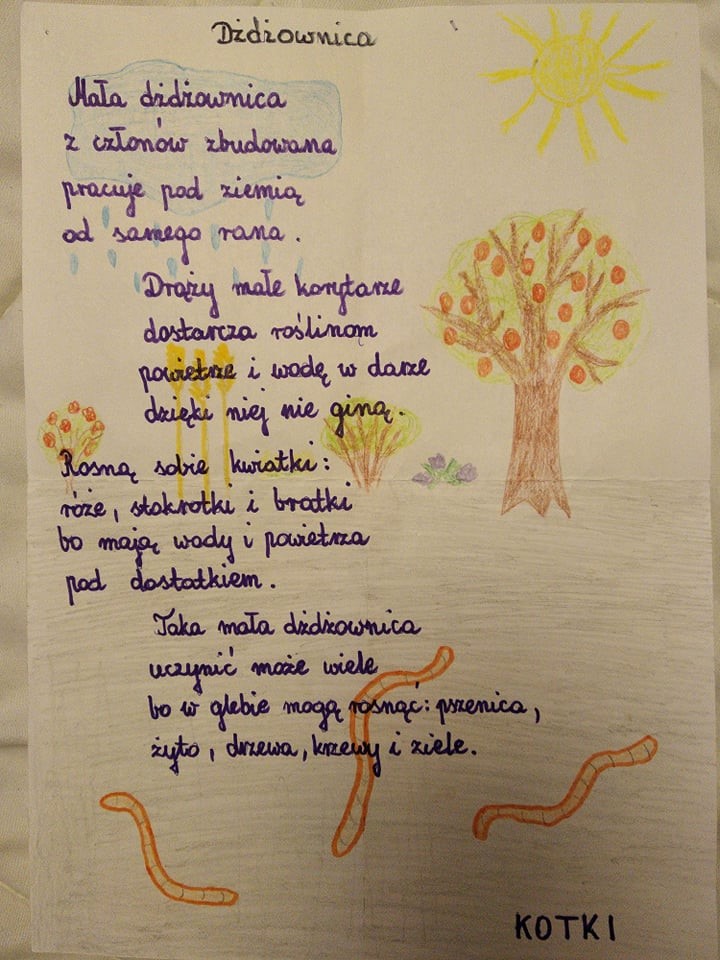 Dżdżownica
Mała dżdżownica
z członów zbudowana
pracuje pod ziemią
od samego rana.
Drąży małe korytarze
dostarcza roślinom
powietrze i wodę w darze
dzięki niej nie giną.
Rosną sobie kwiatki:
róże, stokrotki i bratki
bo mają wody i powietrza
pod dostatkiem.
Taka mała dżdżownica
uczynić może wiele
bo w glebie mogą rosnąć: pszenica,
żyto, drzewa, krzewy i ziele.
KOTKI